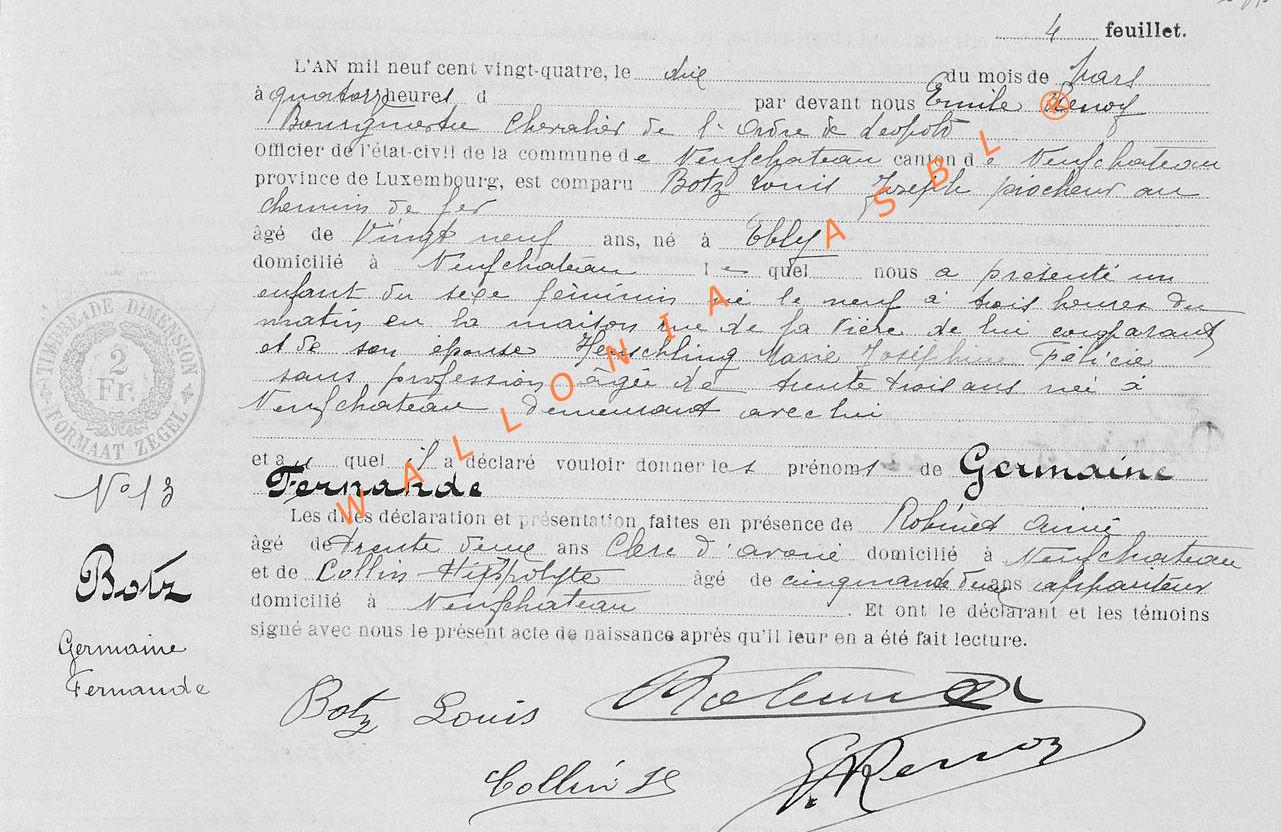 4 feuillet.
L'AN mil neuf cent vingt-quatre, le dix du mois de Mars
à quatorze heures d par devant nous Emile Renoy
Bourgmestre Chevalier de l'Ordre de Léopold
Officier de l'état-civil de la commune de Neufchateau canton de Neufchateau
province de Luxembourg, est comparu Botz Louis Joseph piocheur au
chemin de fer
âgé de Vingt neuf ans, né à Ebly
domicilié à Neufchateau Le quel nous a présenté un
enfant du sexe féminin né le neuf à trois heures du
matin en la maison rue de la de lui comparant
et de son épouse Henschling Marie Joséphine Félicie
sans profession âgée de trente trois ans née à
Neufchateau demeurant avec lui
et au quel il a déclaré vouloir donner les prénoms de Germaine
Fernande
Les dites déclaration et présentation faites en présence de Robinet Aimé
âgé de trente deux ans Clerc d'avoué domicilié à Neufchateau
et de Collin Hippolyte âgé de cinquante deux ans appariteur
domicilié à Neufchateau. Et ont le déclarant et les témoins
signé avec nous le présent acte de naissance après qu'il leur en a été fait lecture.
TIMBRE DE DIMENSION
2
Fr.
FORMAAT ZEGEL
No 13
Botz
Germaine
Fernande
Botz Louis Robinet
Collin H E. Renoy
WALLONIA ASBL ®